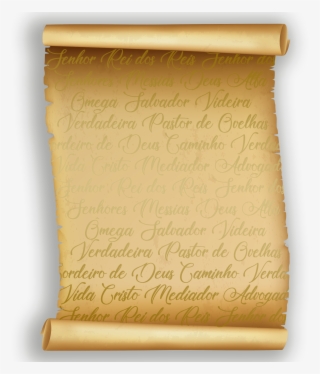 Senhor Rei dos Reis Senhor dos
Omega Salvador Videira
Verdadeira Pastor de Ovelhas
rdeiro de Deus Caminho Verda
Vida Cristo Mediador Advoga
Senhor Rei dos Reis Senhor
Senhores Messias Deus Al
Omega Salvador Videira
Verdadeira Pastor de Ovelhas
ordeiro de Deus Caminho Verda
Vida Cristo Mediador Advogad
Senhor Rei dos Reis Senhor